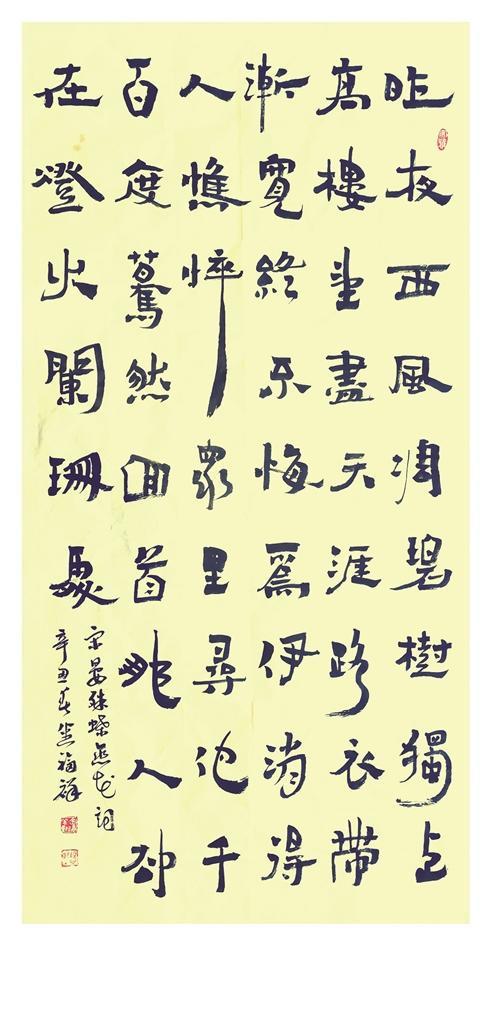 昨夜西風凋碧樹獨上
高樓望盡天涯路衣帶
漸寬終不悔爲伊消得
人憔悴眾里尋他千
百度驀然回首那人卻
在燈火闌珊處
宋晏殊蝶恋花詞
辛丑春福祥